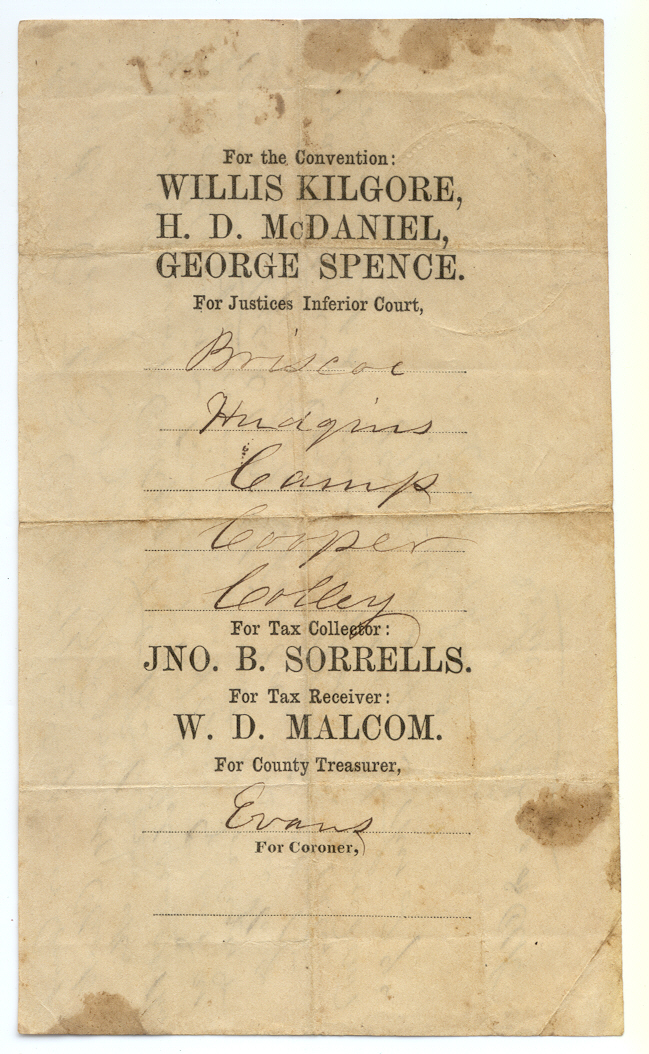 For the Convention:
WILLIS KILGORE,
H. D. McDANIEL,
GEORGE SPENCE.
For Justices Inferior Court,
Briscoe
Hudgins
Camp
Cooper
Colley
For Tax Collector:
JNO. B. SORRELLS.
For Tax Receiver:
W. D. MALCOM.
For County Treasurer,
Evans
For Coroner,